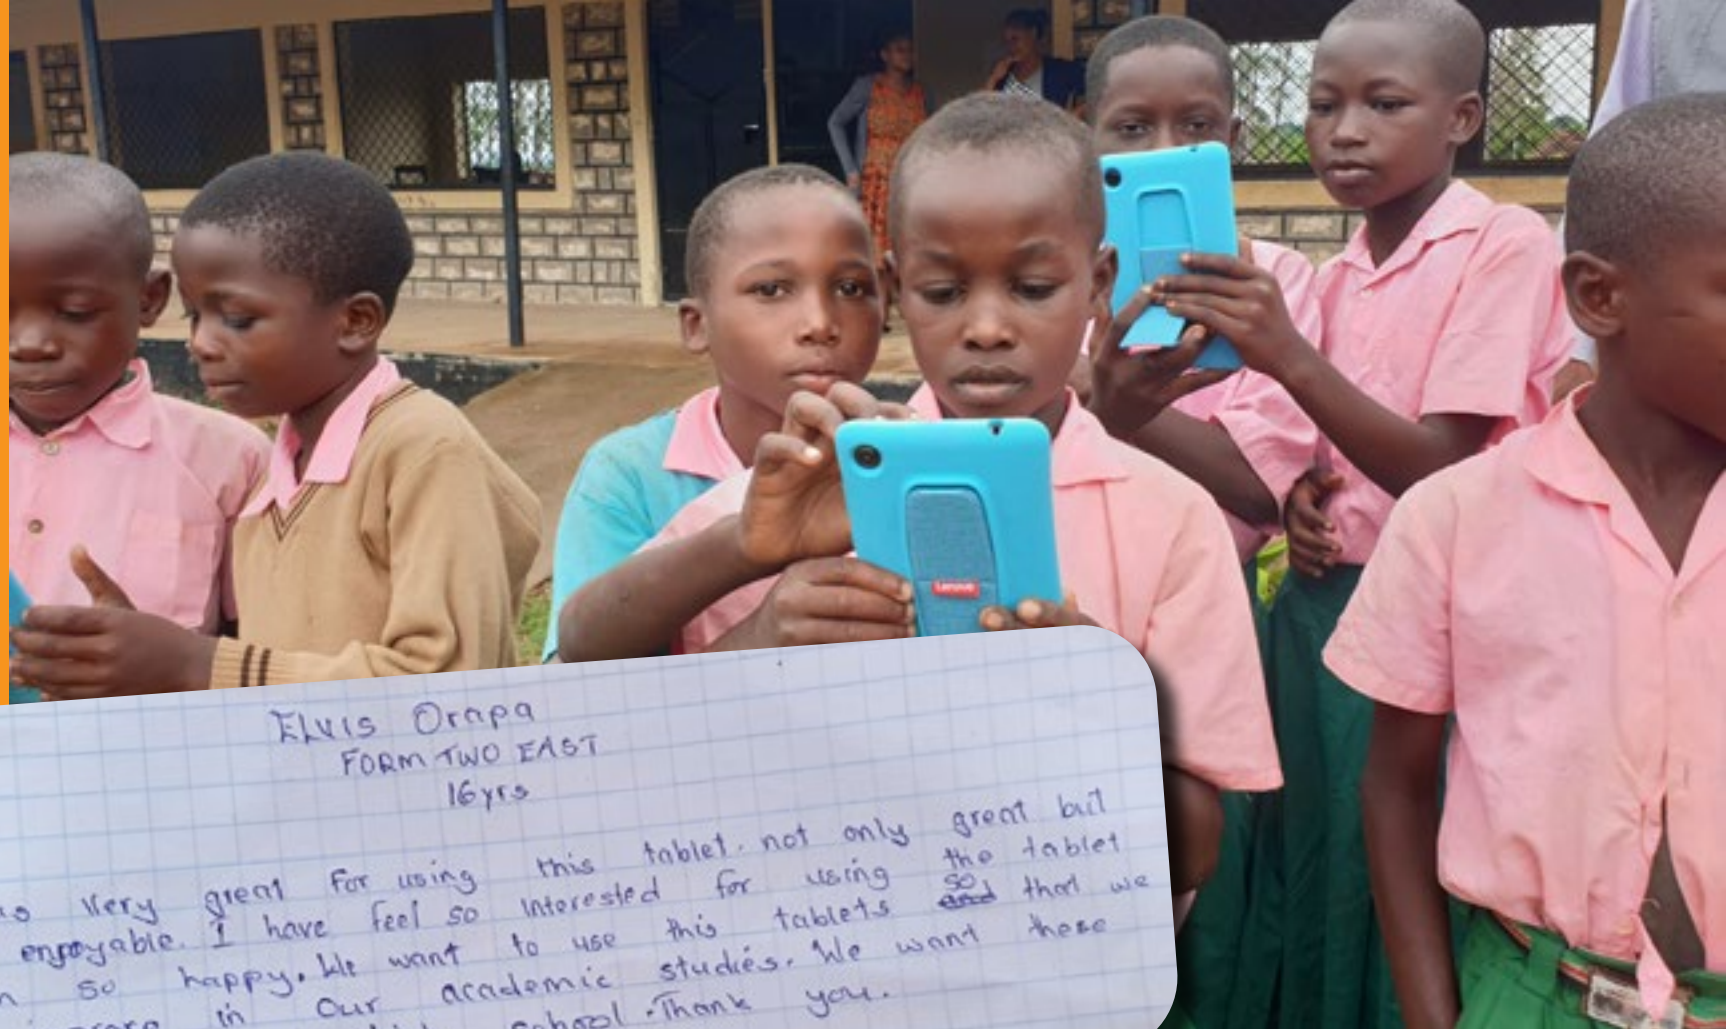 Lenovo
Elvis Orapa
FORM TWO EAST
16yrs
very great for using this tablet. not only great but
enjoyable. I have feel so interested for using the tablet
so happy. We want to use this tablets so that we
in our academic studies. We want these
school. Thank you.